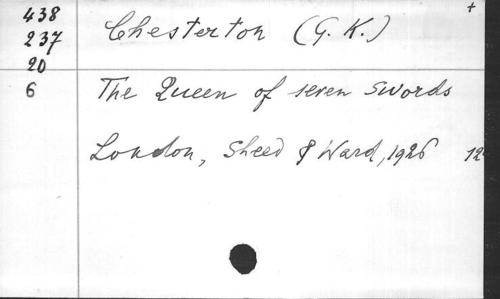 438
237
20
6
+
Chesterton (G. K.)
The Queen of seven Swords
London, Sheed & Ward, 1926 12